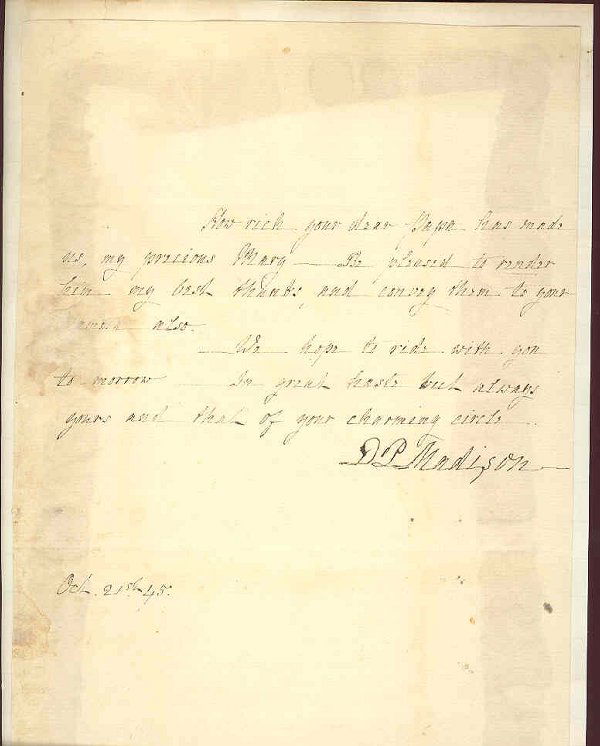 How rich your dear Papa has made
us, my precious Mary — Be pleased to render
him my best thanks, and convey them to your
Mamma also.
— We hope to ride with you
to morrow — In great haste but always
yours and that of your charming circle —
D P Madison —
Oct. 21st 45.